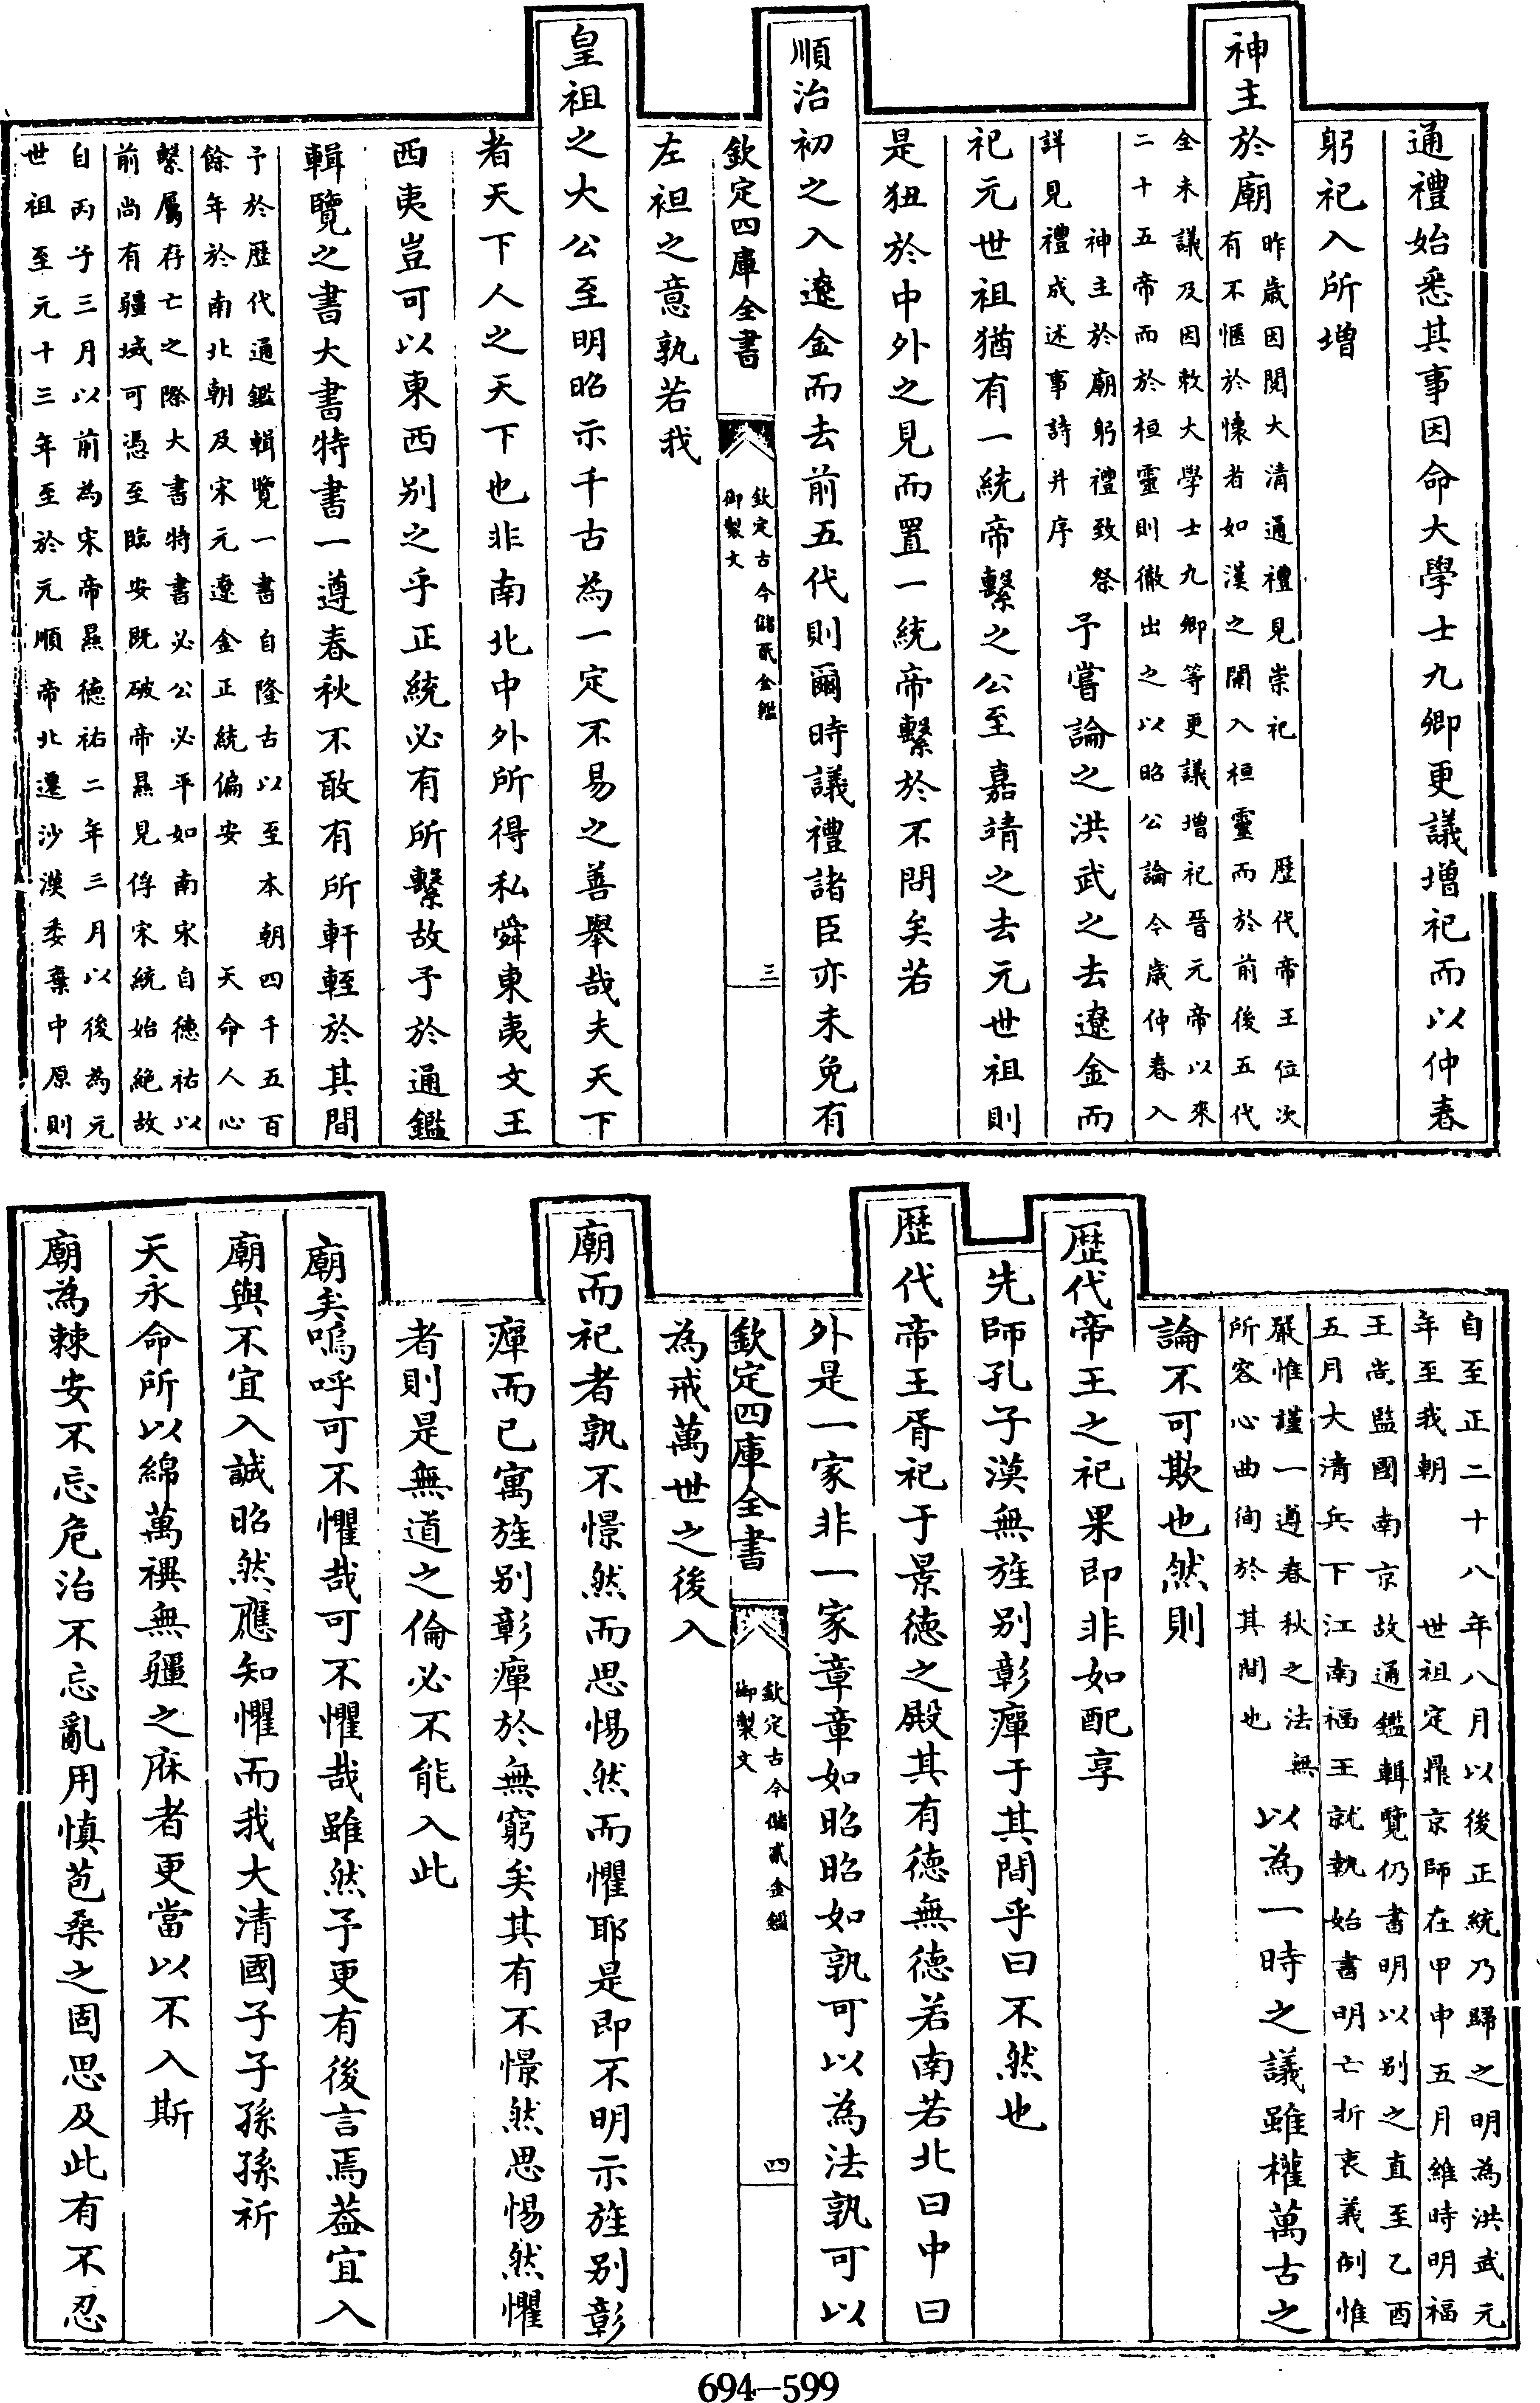 通禮始悉其事因命大學士九卿更議増祀而以仲春
躬祀入所増
神主於廟
昨歲因閱大清通禮見崇祀歴代帝王位次
有不愜於懐者如漢之闌入桓靈而於前後五代
全未議及因敕大學士九卿等更議增祀晋元帝以來
二十五帝而於桓靈則徹出之以昭公論今歲仲春入
神主於廟躬禮致祭
詳見禮成述事詩并序
予嘗論之洪武之去遼金而
祀元世祖猶有一統帝繫之公至嘉靖之去元世祖則
是狃於中外之見而置一統帝繫於不問矣若
順治初之入遼金而去前五代則爾時議禮諸臣亦未免有
欽定四庫全書
欽定古今儲貳金鑑
御製文
三
左袒之意孰若我
皇祖之大公至明昭示千古為一定不易之善舉哉夫天下
者天下人之天下也非南北中外所得私舜東夷文王
西夷豈可以東西别之乎正統必有所繫故予於通鑑
輯覽之書大書特書一遵春秋不敢有所軒輊於其間
予於歴代通鑑輯覽一書自隆古以至本朝四千五百
餘年於南北朝及宋元遼金正統偏安天命人心
繫屬存亡之際大書特書必公必平如南宋自德祐以
前尚有疆域可憑至臨安既破帝㬎見俘宋統始絶故
自丙子三月以前為宋帝㬎德祐二年三月以後為元
世祖至元十三年至於元順帝北遷沙漠委棄中原則
自至正二十八年八月以後正統乃歸之明為洪武元
年至我朝世祖定鼎京師在甲申五月維時明福
王尚監國南京故通鑑輯覽仍書明以别之直至乙酉
五月大清兵下江南福王就執始書明亡折衷義例惟
嚴惟謹一遵春秋之法無
所容心曲徇於其間也
以為一時之議雖權萬古之
論不可欺也然則
歴代帝王之祀果即非如配享
先師孔子漠無旌别彰癉于其間乎曰不然也
歴代帝王胥祀于景德之殿其有德無德若南若北曰中曰
外是一家非一家章章如昭昭如孰可以為法孰可以
欽定四庫全書
欽定古今儲貳金鑑
御製文
四
為戒萬世之後入
廟而祀者孰不憬然而思惕然而懼耶是即不明示旌别彰
癉而已寓旌别彰癉於無窮矣其有不憬然思惕然懼
者則是無道之倫必不能入此
廟矣嗚呼可不懼哉可不懼哉雖然予更有後言焉葢宜入
廟與不宜入誠昭然應知懼而我大清國子子孫孫祈
天永命所以綿萬禩無疆之庥者更當以不入斯
廟為棘安不忘危治不忘亂用慎苞桑之固思及此有不忍
694—599